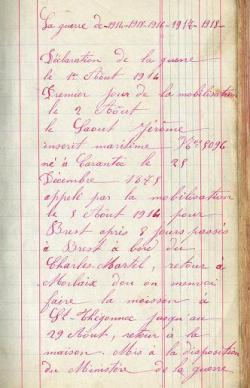 La guerre de 1914-1915-1916-1917-1918-
Déclaration de la guerre
le 1er Août 1914
Premier jour de la mobilisation
le 2 Août
le Saout Jérôme
inscrit maritime N° 5096
né à Carantec le 25
Décembre 1875
appelé par la mobilisation
le 3 Août 1914 pour
Brest après 8 jours passés
à Brest à bord du
Charles-Martel, retour à
Morlaix d'ou on m'envoi
faire la moisson à
St-Thégonnec jusqu'au
29 Août, retour à la
maison. Mis à la disposition
du Ministère de la guerre